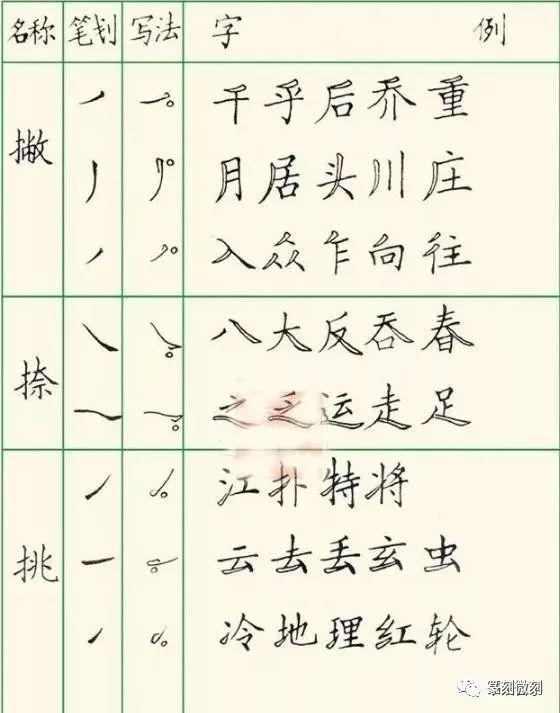 名称 笔划 写法 字 例
撇
千乎后乔重
月居头川庄
入众乍向往
捺
八大反吞春
之乏运走足
挑
江扑特将
云去丢玄虫
冷地理红轮
篆刻微刻